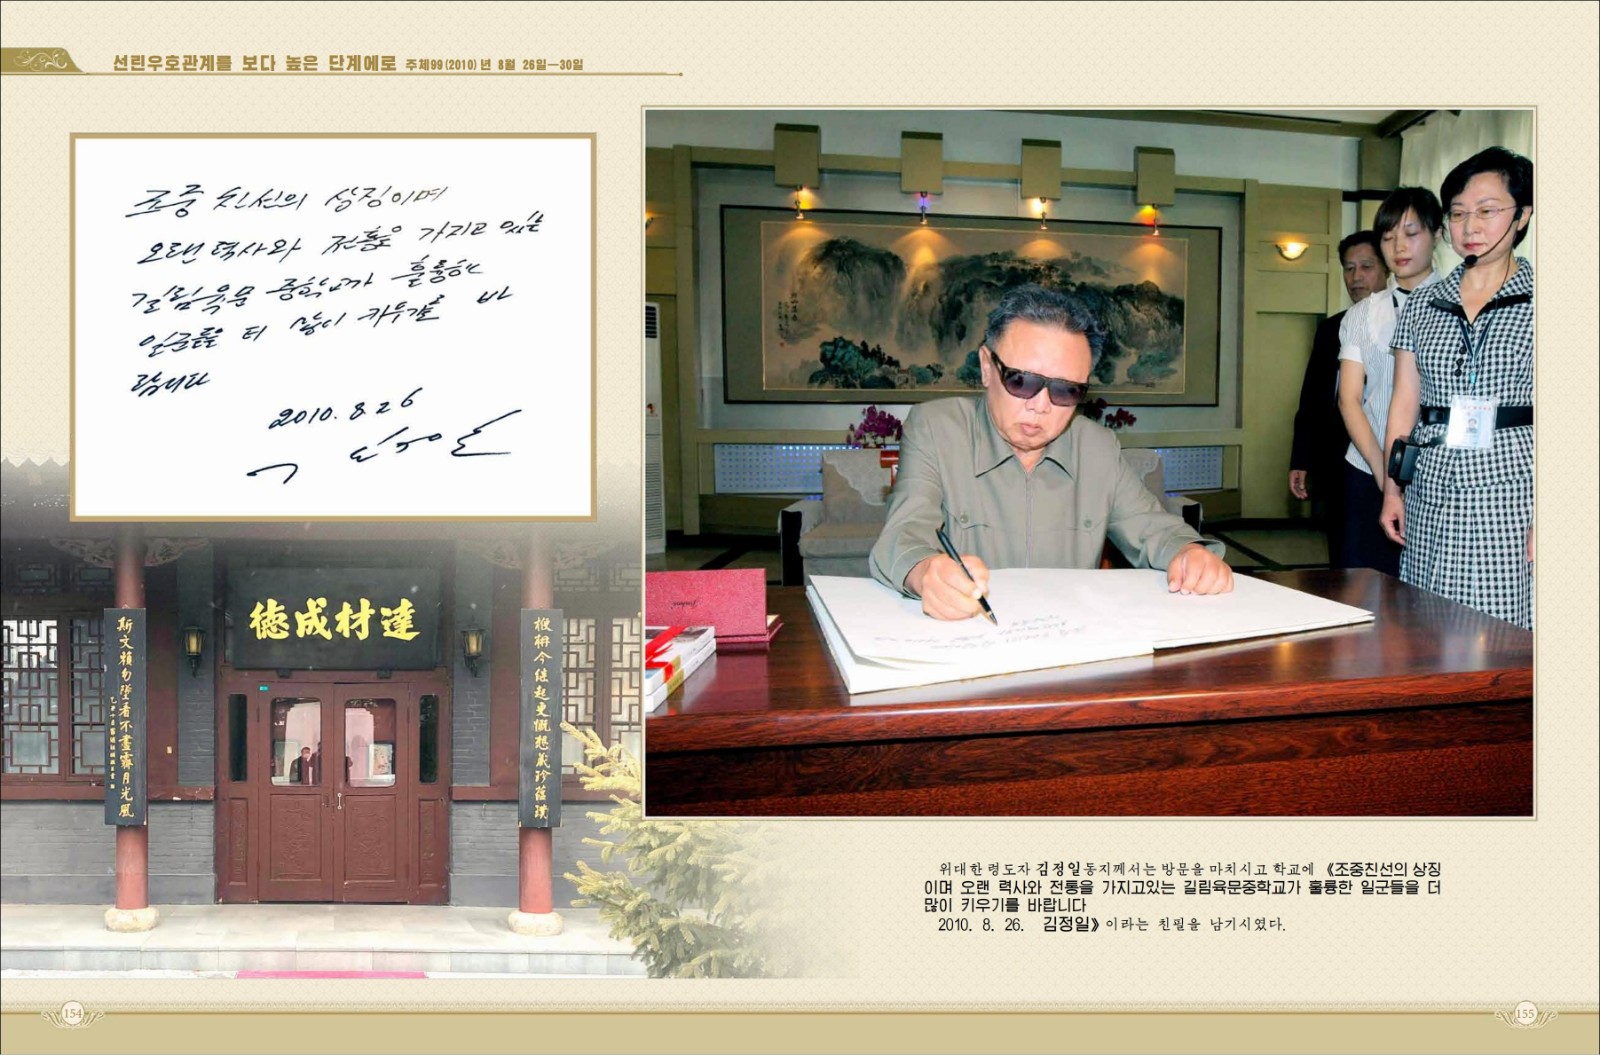 선린우호관계를 보다 높은 단계에로 주체99(2010)년 8월 26일—30일
조중 친선의 상징이며
오랜 력사와 전통을 가지고 있는
길림육문 중학교가 훌륭한
일군들을 더 많이 키우기를 바
랍니다
2010. 8. 26
김정일
德成材達
斯文賴勿墜看不盡霽月光風
154
위대한 령도자 김정일동지께서는 방문을 마치시고 학교에 《조중친선의 상징
이며 오랜 력사와 전통을 가지고있는 길림육문중학교가 훌륭한 일군들을 더
많이 키우기를 바랍니다
2010. 8. 26. 김정일》이라는 친필을 남기시였다.
155